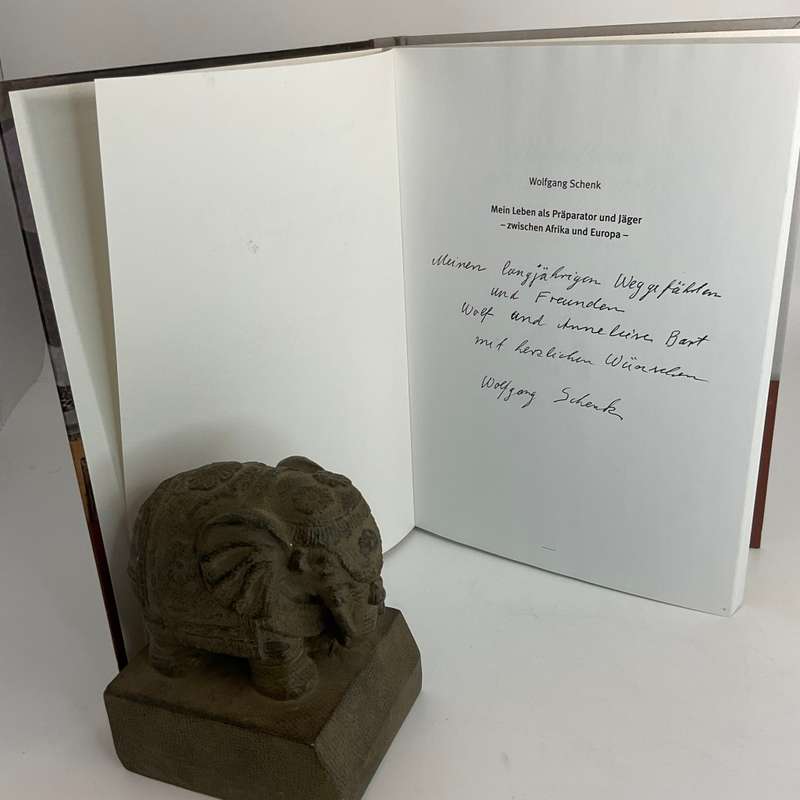 Wolfgang Schenk
Mein Leben als Präparator und Jäger
– zwischen Afrika und Europa –
Meinen langjährigen Weggefährten
und Freunden
Wolf und Anneliese Bart
mit herzlichen Wünschen
Wolfgang Schenk